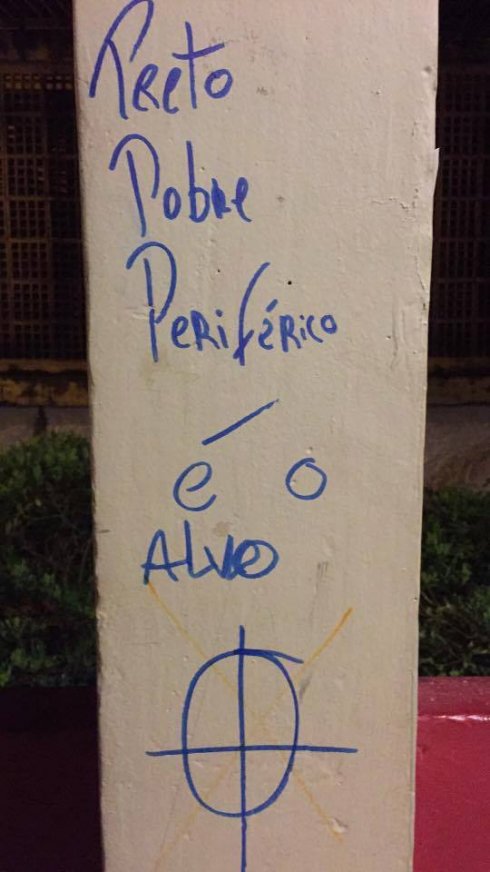 Preto
Pobre
Periférico
é o
ALVO